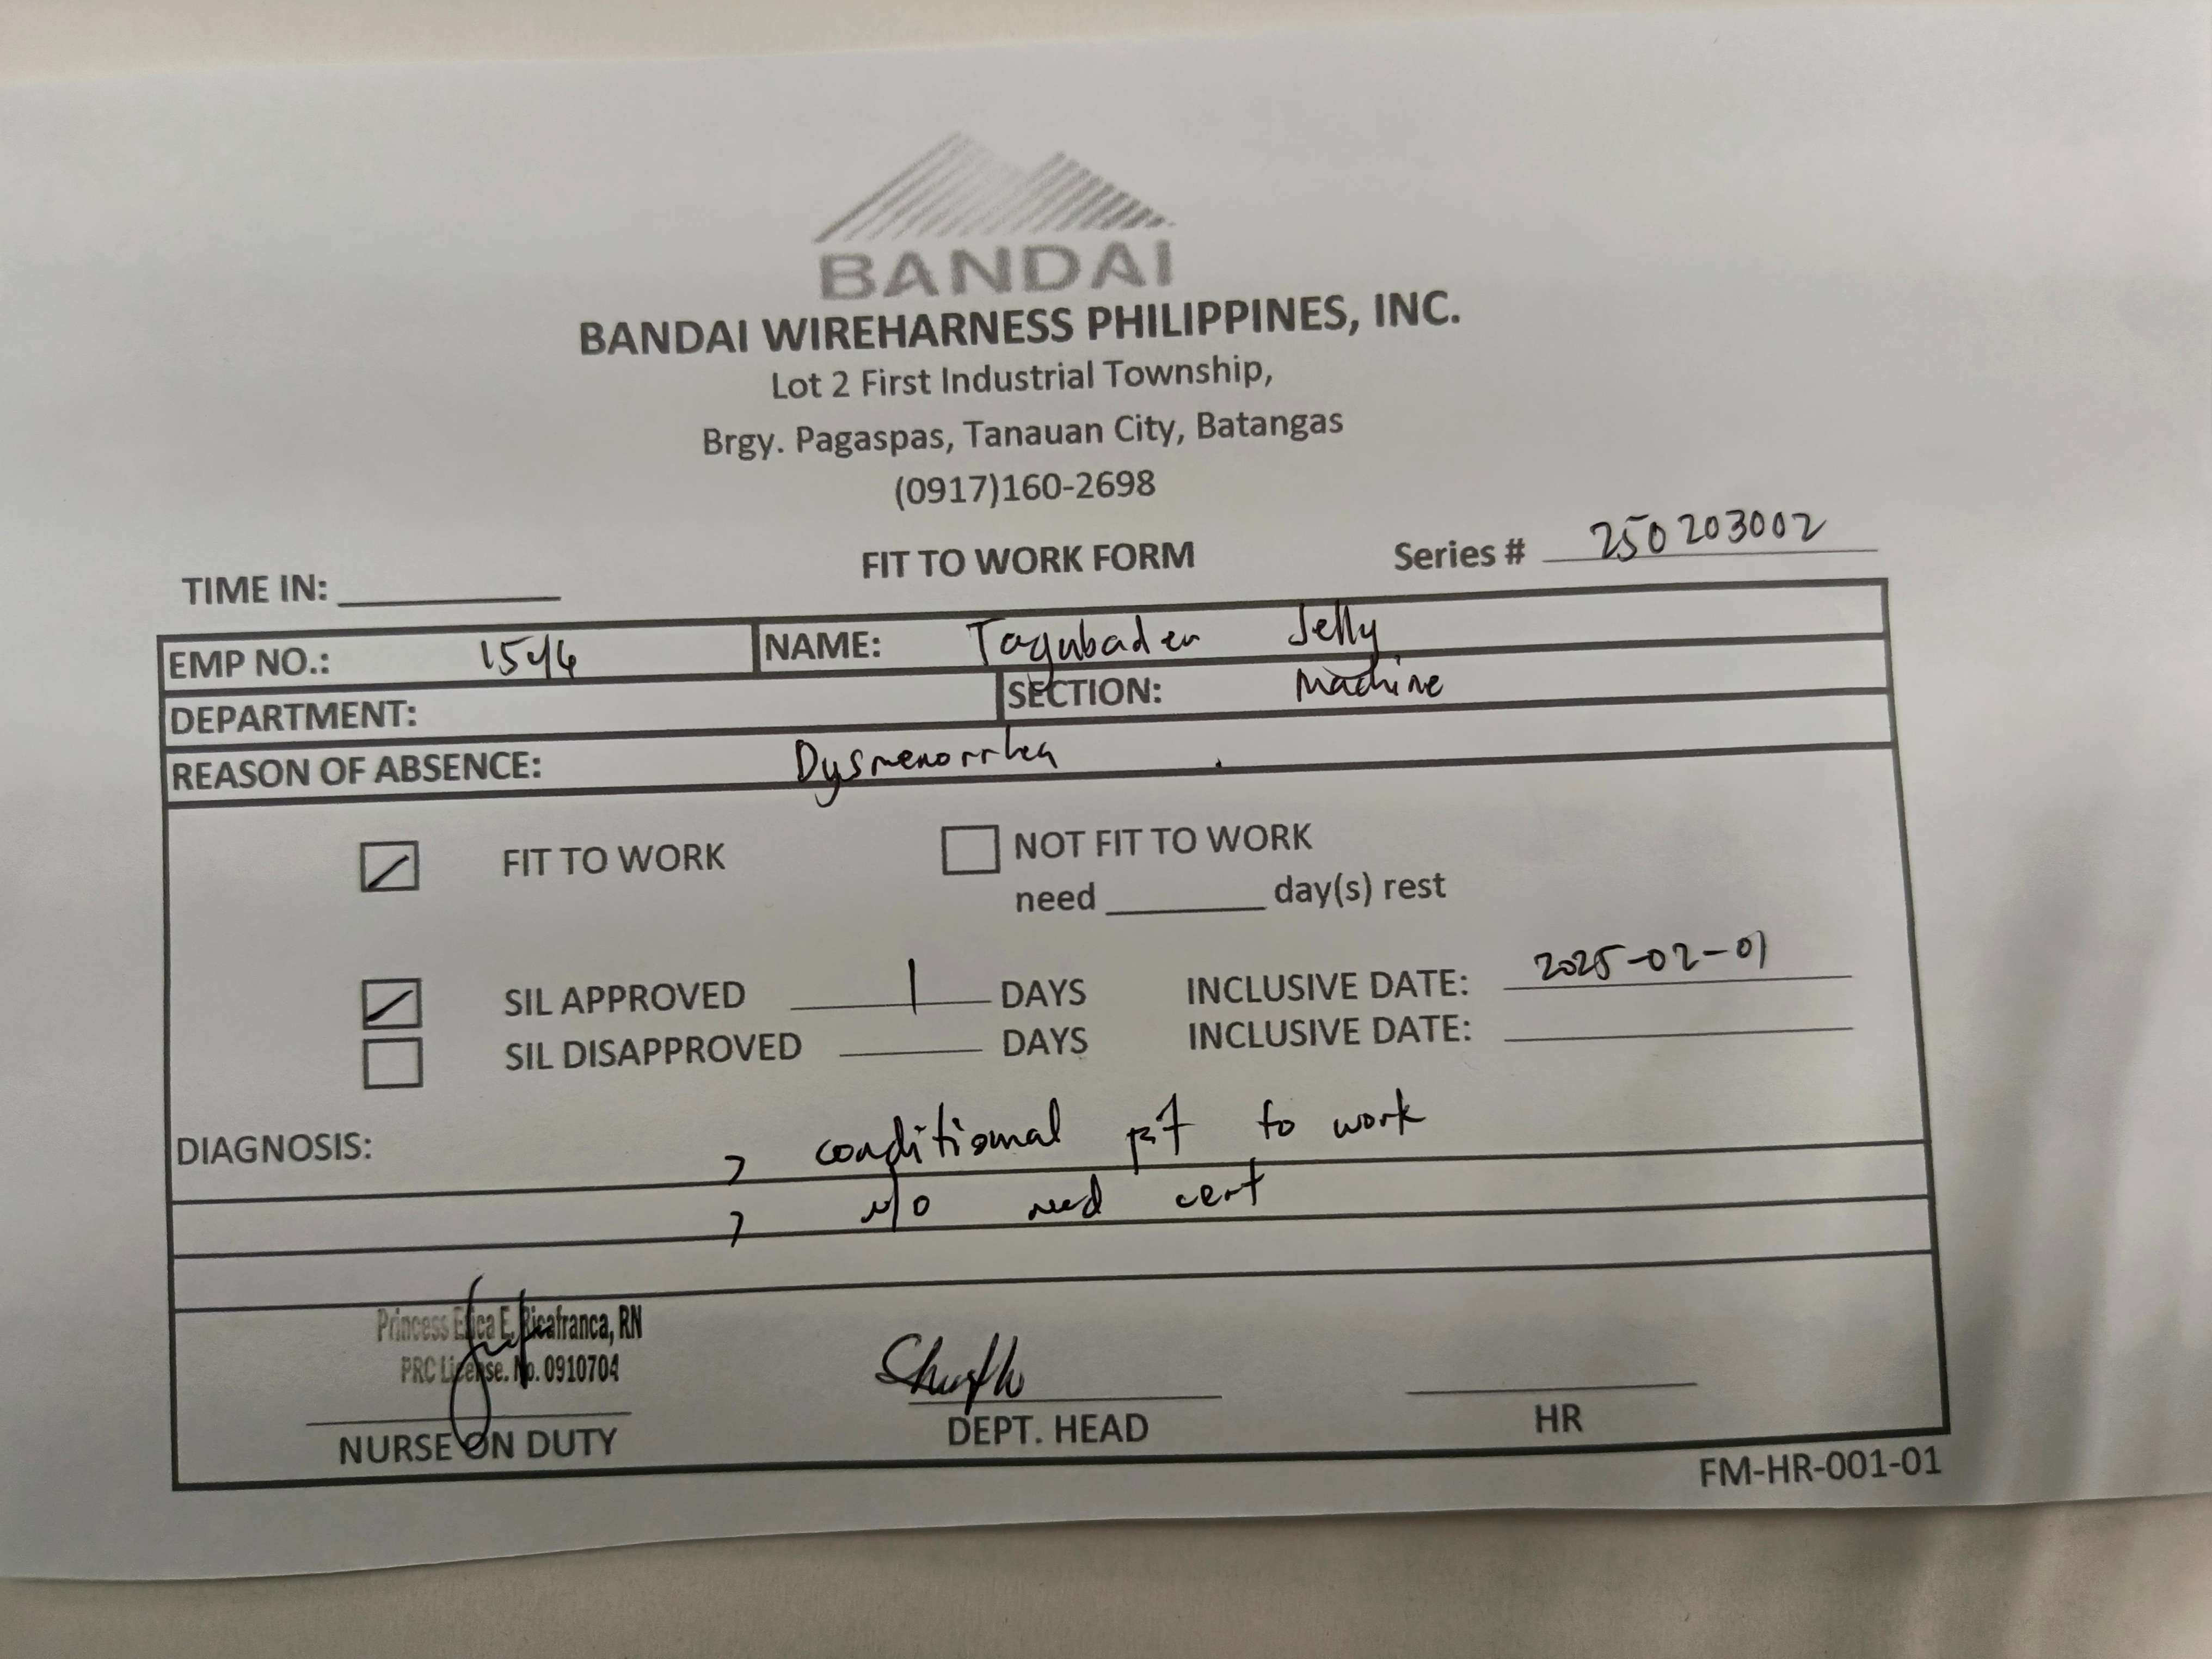 BANDAI
BANDAI WIREHARNESS PHILIPPINES, INC.
Lot 2 First Industrial Township,
Brgy. Pagaspas, Tanauan City, Batangas
(0917)160-2698
TIME IN: FIT TO WORK FORM Series # 250203002
EMP NO.: 1546 NAME: Tagubader Jelly
DEPARTMENT: SECTION: Machine
REASON OF ABSENCE: Dysmenorrhea
FIT TO WORK NOT FIT TO WORK
need day(s) rest
SIL APPROVED 1 DAYS INCLUSIVE DATE: 2025-02-01
SIL DISAPPROVED DAYS INCLUSIVE DATE:
DIAGNOSIS: conditional fit to work
w/o med cert
Princess Erica E. Ricafranca, RN
PRC License. No. 0910704
NURSE ON DUTY DEPT. HEAD HR
FM-HR-001-01